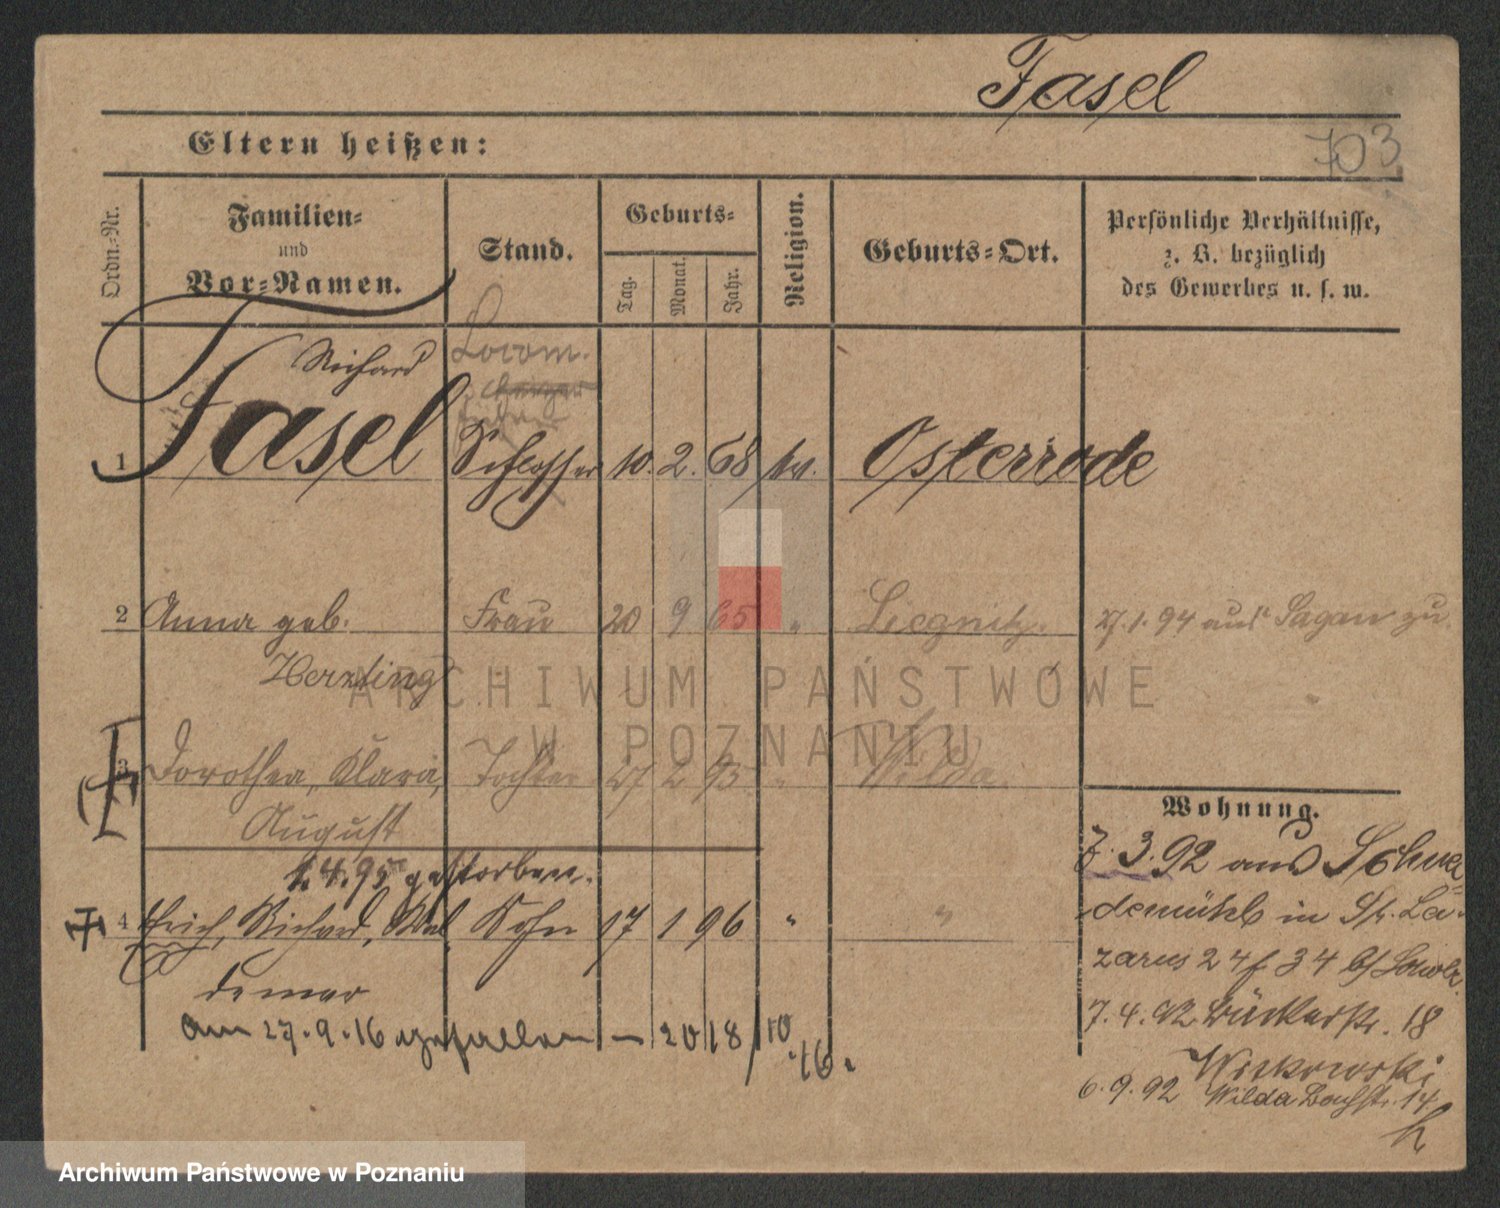 Fasel
703
Eltern heißen:
Ordn.-Nr.
Familien- und Vor-Namen.
Stand.
Geburts-
Tag. Monat. Jahr.
Religion.
Geburts-Ort.
Persönliche Verhältnisse,
z. B. bezüglich
des Gewerbes u. s. w.
Richard
Locom.
1 Fasel Schlosser 10. 2. 68 ev. Osterrode
2 Anna geb. Frau 20 9 65 " Liegnitz. 27.1.94 aus Sagan zu
ARCHIWUM PAŃSTWOWE
W POZNANIU
3 Dorothea, Klara, Tochter 27 2 95 " Wilda
August
1.4.95 gestorben.
4 Erich, Richard, Wal Sohn 17 1 96 " "
demar
am 27.9.16 gefallen – 2018/10
16.
Wohnung.
7.3.92 aus Schnei-
demühl in St. La-
zarus 24 f 34 b/
7.4.92 18
6.9.92 Wilda Bachstr. 14
Archiwum Państwowe w Poznaniu